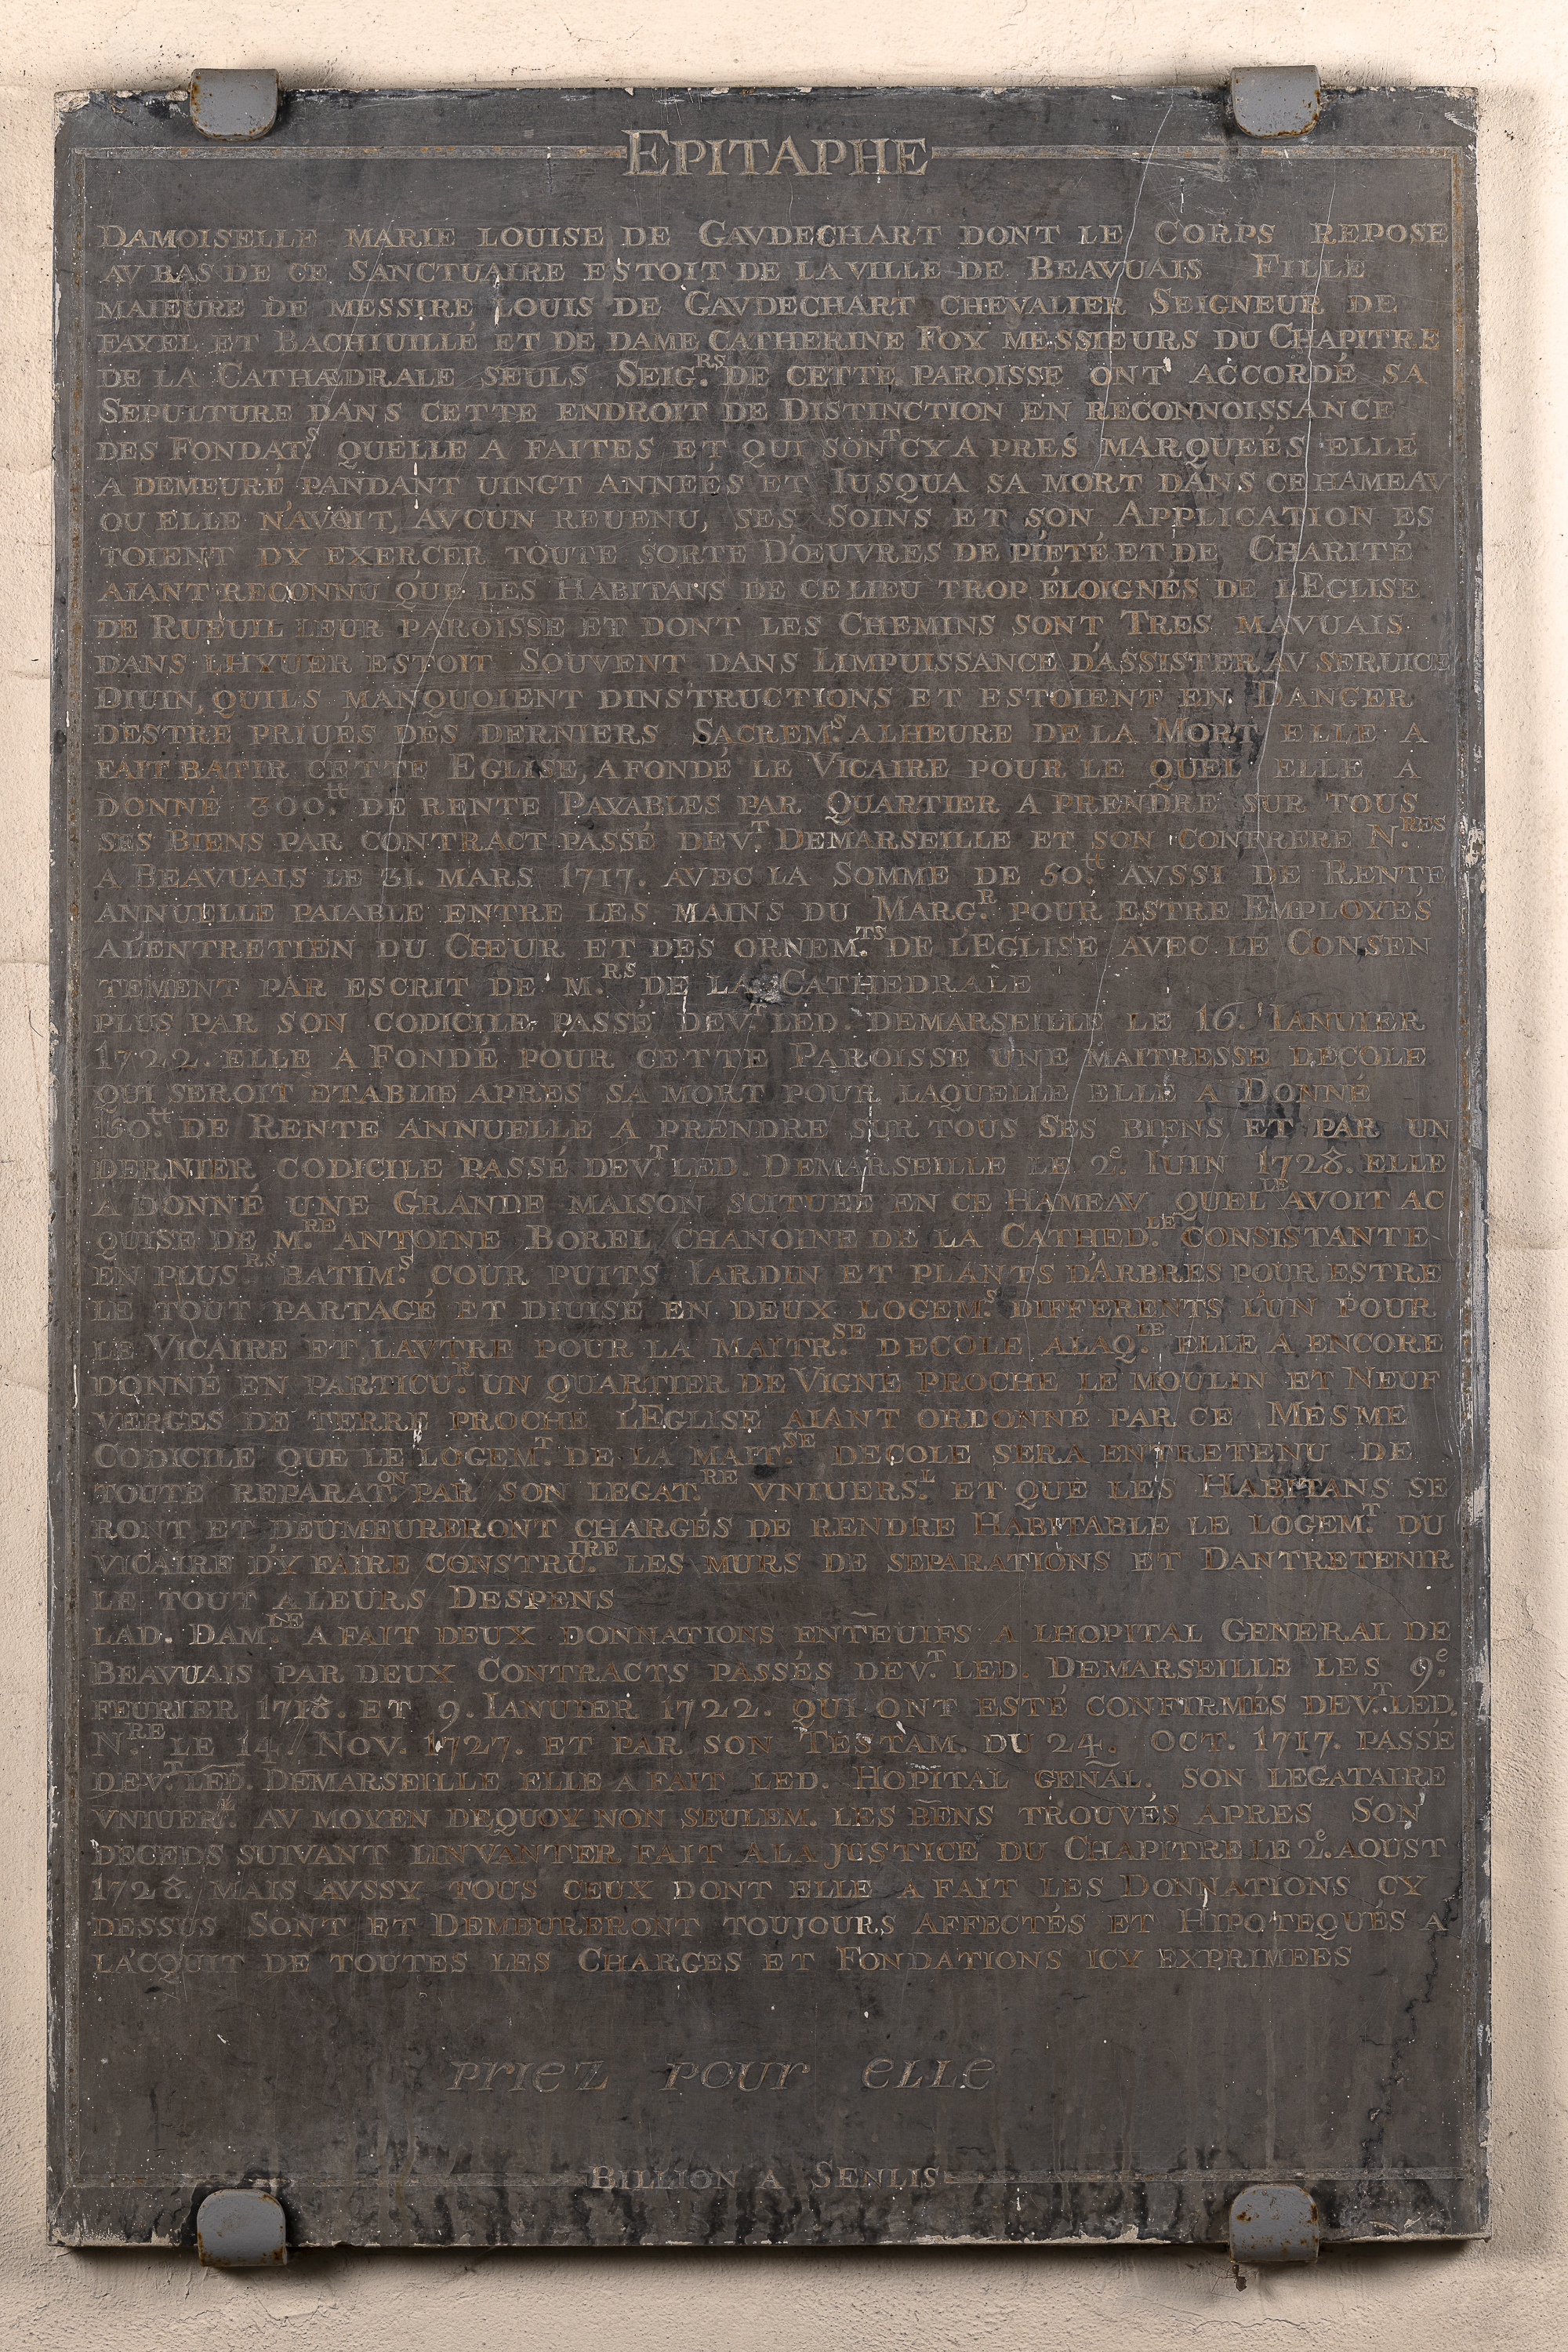 EPITAPHE
DAMOISELLE MARIE LOUISE DE GAVDECHART DONT LE CORPS REPOSE
AV BAS DE CE SANCTUAIRE ESTOIT DE LA VILLE DE BEAVUAIS FILLE
MAIEURE DE MESSIRE LOUIS DE GAVDECHART CHEVALIER SEIGNEUR DE
FAYEL ET BACHIUILLÉ ET DE DAME CATHERINE FOY MESSIEURS DU CHAPITRE
DE LA CATHÆDRALE SEULS SEIG.RS DE CETTE PAROISSE ONT ACCORDÉ SA
SEPULTURE DANS CETTE ENDROIT DE DISTINCTION EN RECONNOISSANCE
DES FONDAT.S QUELLE A FAITES ET QUI SONT CY A PRES MARQUEÉS ELLE
A DEMEURÉ PANDANT UINGT ANNEÉS ET IUSQUA SA MORT DANS CE HAMEAV
OU ELLE N'AVOIT, AVCUN REUENU, SES SOINS ET SON APPLICATION ES
TOIENT DY EXERCER TOUTE SORTE D'ŒUVRES DE PIETÉ ET DE CHARITÉ
AIANT RECONNU QUE LES HABITANS DE CE LIEU TROP ÉLOIGNÉS DE L'EGLISE
DE RUEUIL LEUR PAROISSE ET DONT LES CHEMINS SONT TRES MAVUAIS
DANS LHYUER ESTOIT SOUVENT DANS LIMPUISSANCE D'ASSISTER AV SERUICE
DIUIN, QUILS MANQUOIENT DINSTRUCTIONS ET ESTOIENT EN DANGER
DESTRE PRIUÉS DES DERNIERS SACREM.S A LHEURE DE LA MORT ELLE A
FAIT BATIR CETTE EGLISE, A FONDÉ LE VICAIRE POUR LE QUEL ELLE A
DONNÉ 300.tt DE RENTE PAYABLES PAR QUARTIER A PRENDRE SUR TOUS
SES BIENS PAR CONTRACT PASSÉ DEV.T DEMARSEILLE ET SON CONFRERE N.RES
A BEAVUAIS LE 31. MARS 1717. AVEC LA SOMME DE 50.tt AVSSI DE RENTE
ANNUELLE PAIABLE ENTRE LES MAINS DU MARG.R POUR ESTRE EMPLOYÉS
A L'ENTRETIEN DU CHŒUR ET DES ORNEM.TS DE L'EGLISE AVEC LE CONSEN
TEMENT PAR ESCRIT DE M.RS DE LA CATHEDRALE
PLUS PAR SON CODICILE PASSÉ DEV.T LED. DEMARSEILLE LE 16. IANUIER
1722. ELLE A FONDÉ POUR CETTE PAROISSE UNE MAITRESSE DECOLE
QUI SEROIT ÉTABLIE APRES SA MORT POUR LAQUELLE ELLE A DONNÉ
150.tt DE RENTE ANNUELLE A PRENDRE SUR TOUS SES BIENS ET PAR UN
DERNIER CODICILE PASSÉ DEV.T LED. DEMARSEILLE LE 2e. IUIN 1728. ELLE
A DONNÉ UNE GRANDE MAISON SCITUEÉ EN CE HAMEAV QUEL.LE AVOIT AC
QUISE DE M.RE ANTOINE BOREL CHANOINE DE LA CATHED.LE CONSISTANTE
EN PLUS.RS BATIM.S COUR PUITS IARDIN ET PLANTS D'ARBRES POUR ESTRE
LE TOUT PARTAGÉ ET DIUISÉ EN DEUX LOGEM.S DIFFERENTS L'UN POUR
LE VICAIRE ET LAVTRE POUR LA MAITR.SE DECOLE A LAQ.LE ELLE A ENCORE
DONNÉ EN PARTICU.R UN QUARTIER DE VIGNE PROCHE LE MOULIN ET NEUF
VERGES DE TERRE PROCHE L'EGLISE AIANT ORDONNÉ PAR CE MESME
CODICILE QUE LE LOGEM.T DE LA MAIT.SE DECOLE SERA ENTRETENU DE
TOUTE REPARAT.ON PAR SON LEGAT.RE VNIUERS.L ET QUE LES HABITANS SE
RONT ET DEUMEURERONT CHARGÉS DE RENDRE HABITABLE LE LOGEM.T DU
VICAIRE D'Y FAIRE CONSTRU.IRE LES MURS DE SEPARATIONS ET DANTRETENIR
LE TOUT A LEURS DESPENS
LAD. DAM.LE A FAIT DEUX DONNATIONS ENTEUIFS A LHOPITAL GENERAL DE
BEAVUAIS PAR DEUX CONTRACTS PASSÉS DEV.T LED. DEMARSEILLE LES 9e.
FEURIER 1718. ET 9. IANUIER 1722. QUI ONT ESTÉ CONFIRMÉS DEV.T LED.
N.RE LE 14. NOV. 1727. ET PAR SON TESTAM. DU 24. OCT. 1717. PASSÉ
DEV.T LED. DEMARSEILLE ELLE A FAIT LED. HOPITAL GEÑAL. SON LEGATAIRE
VNIUER.L AV MOYEN DEQUOY NON SEULEM. LES BENS TROUVÉS APRES SON
DECEDS SUIVANT LINVANTER FAIT A LA JUSTICE DU CHAPITRE LE 2e. AOUST
1728. MAIS AVSSY TOUS CEUX DONT ELLE A FAIT LES DONNATIONS CY
DESSUS SONT ET DEMEURERONT TOUJOURS AFFECTÉS ET HIPOTEQUÉS A
L'ACQUIT DE TOUTES LES CHARGES ET FONDATIONS ICY EXPRIMEES
PRIEZ POUR ELLE
BILLION A SENLIS